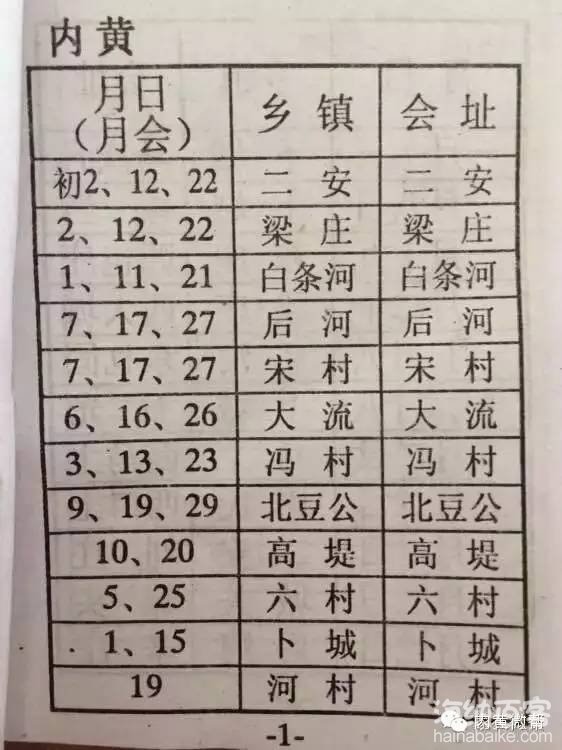 内黄
月日 乡镇 会址
（月会）
初2、12、22 二安 二安
2、12、22 梁庄 梁庄
1、11、21 白条河 白条河
7、17、27 后河 后河
7、17、27 宋村 宋村
6、16、26 大流 大流
3、13、23 冯村 冯村
9、19、29 北豆公 北豆公
10、20 高堤 高堤
5、25 六村 六村
1、15 卜城 卜城
19 河村 河村
-1-
海纳百客
内黄微帮
hainabaike.com